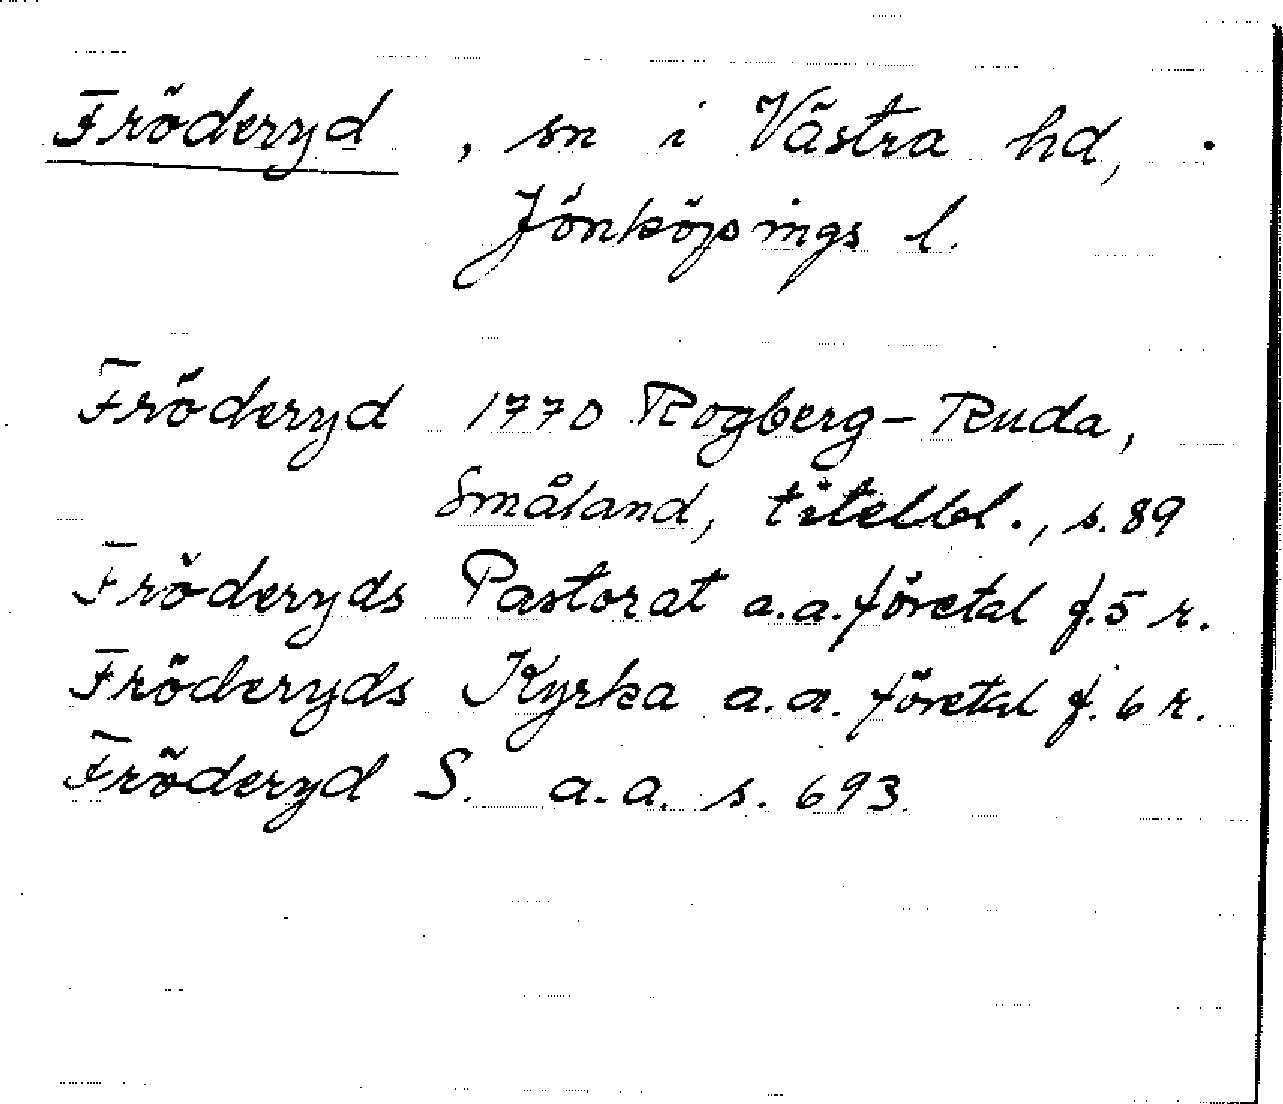 Fröderyd , sn i Västra hd,
Jönköpings l.
Fröderyd 1770 Rogberg-Ruda,
Småland, titelbl., s. 89
Fröderyds Pastorat a.a. företal f. 5 r.
Fröderyds Kyrka a.a. företal f. 6 r.
Fröderyd S. a.a. s. 693